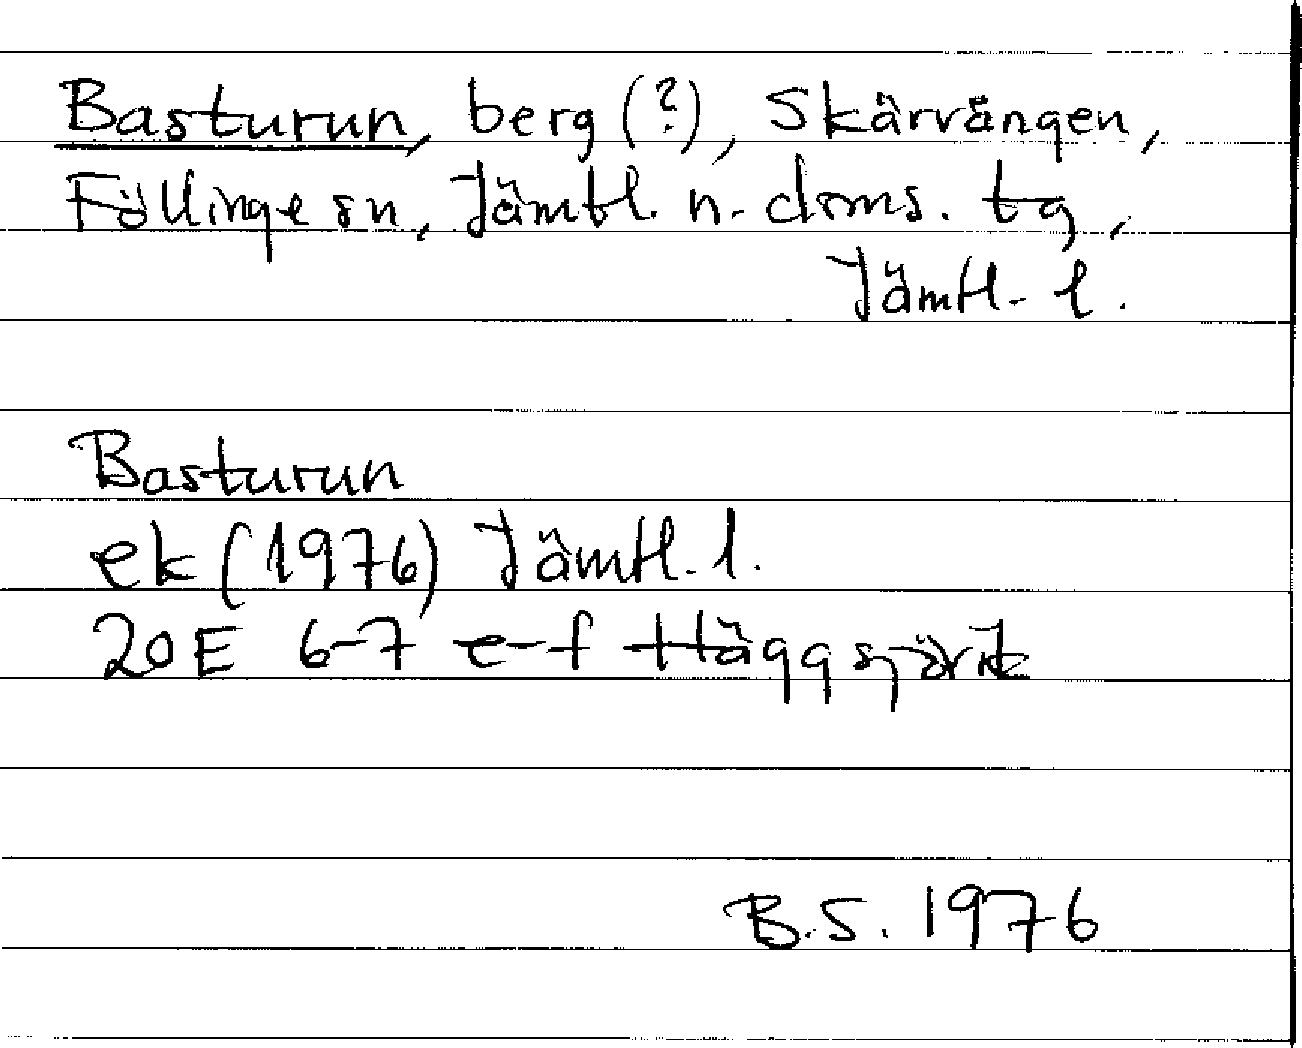 Basturun, berg (?), Skärvången,
Föllinge sn, Jämtl. n. doms. tg,
Jämtl. l.
Basturun
ek (1976) Jämtl. l.
20E 6-7 e-f Häggsjövik
B.S. 1976